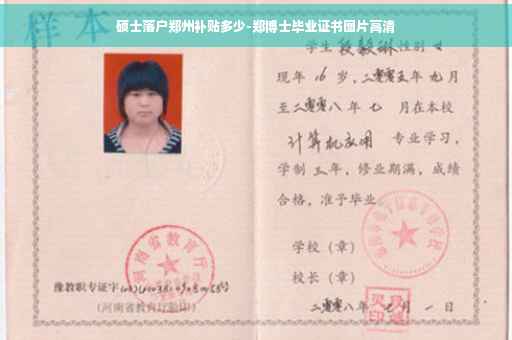 硕士落户郑州补贴多少-郑博士毕业证书图片高清
样本
学生段毅琳性别女
现年16岁,二零零五年九月
至二零零八年七月在本校
计算机应用专业学习,
学制三年,修业期满,成绩
合格,准予毕业
学校(章)
校长(章)
二零零八年 月一日
河南省教育厅
豫教职专证字
(河南省教育厅验印)